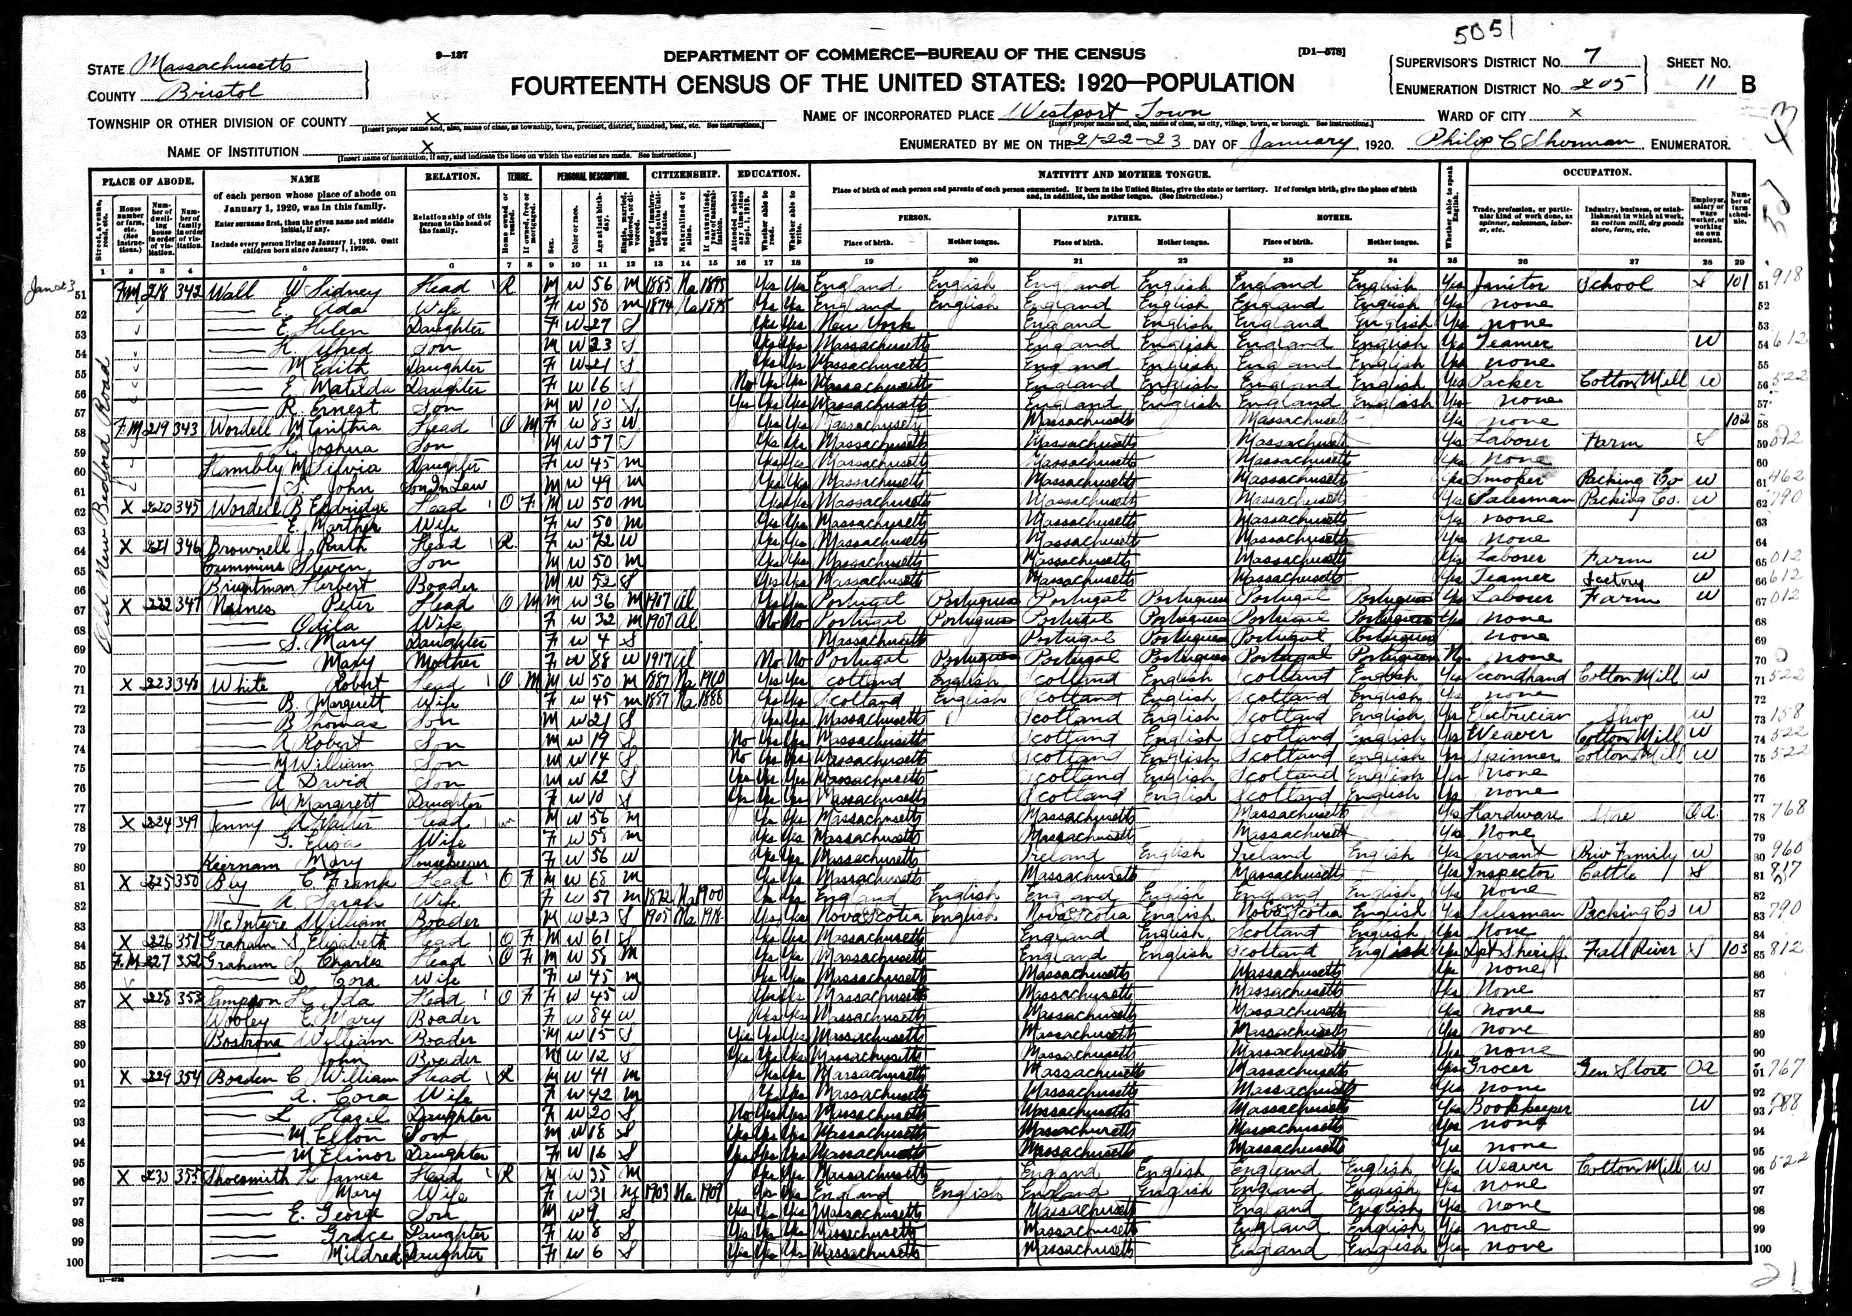 5051
STATE Massachusetts
9-137
DEPARTMENT OF COMMERCE—BUREAU OF THE CENSUS
[D1-578]
SUPERVISOR'S DISTRICT No. 7 SHEET No.
COUNTY Bristol
FOURTEENTH CENSUS OF THE UNITED STATES: 1920—POPULATION
ENUMERATION DISTRICT No. 205 11 B
TOWNSHIP OR OTHER DIVISION OF COUNTY x
NAME OF INCORPORATED PLACE Westport Town
WARD OF CITY x
NAME OF INSTITUTION x
ENUMERATED BY ME ON THE 21-22-23 DAY OF January, 1920. Philip C Sherman ENUMERATOR.
PLACE OF ABODE. NAME RELATION. TENURE. PERSONAL DESCRIPTION. CITIZENSHIP. EDUCATION. NATIVITY AND MOTHER TONGUE. OCCUPATION.
of each person whose place of abode on January 1, 1920, was in this family.
Enter surname first, then the given name and middle initial, if any.
Include every person living on January 1, 1920. Omit children born since January 1, 1920.
Relationship of this person to the head of the family.
Place of birth of each person and parents of each person enumerated. If born in the United States, give the state or territory. If of foreign birth, give the place of birth and, in addition, the mother tongue. (See instructions.)
PERSON. FATHER. MOTHER.
Place of birth. Mother tongue. Place of birth. Mother tongue. Place of birth. Mother tongue.
1 2 3 4 5 6 7 8 9 10 11 12 13 14 15 16 17 18 19 20 21 22 23 24 25 26 27 28 29
Old New Bedford Road
51 FM 218 342 Wall W Sidney Head R M W 56 M 1885 Na 1895 Yes Yes England English England English England English Yes Janitor School 101 51 918
52 E Ada Wife F W 50 M 1874 Na 1895 Yes Yes England English England English England English Yes none 52
53 E Helen Daughter F W 27 S Yes Yes New York England English England English Yes none 53
54 H Alfred Son M W 23 S Yes Yes Massachusetts England English England English Yes Teamer W 54 612
55 M Edith Daughter F W 21 S Yes Yes Massachusetts England English England English Yes none 55
56 E Matilda Daughter F W 16 S No Yes Yes Massachusetts England English England English Yes Packer Cotton Mill W 56 522
57 R Ernest Son M W 10 S Yes Yes Yes Massachusetts England English England English Yes none 57
58 F.M 219 343 Wordell M Cinthia Head O M F W 83 W Yes Yes Massachusetts Massachusetts Massachusetts Yes none 102 58
59 Joshua Son M W 57 S Massachusetts Massachusetts Massachusetts Yes Laborer Farm 59 012
60 Hambly M Silvia Daughter F W 45 M Yes Yes Massachusetts Massachusetts Massachusetts Yes none 60
61 John Son In Law M W 49 M Massachusetts Massachusetts Massachusetts Yes Smoker Packing Co W 61 462
62 X 220 345 Wordell B Eldridge Head O F M W 50 M Yes Yes Massachusetts Massachusetts Massachusetts Yes Salesman Packing Co. W 62 790
63 E. Marther Wife F W 50 M Yes Yes Massachusetts Massachusetts Massachusetts Yes none 63
64 X 221 346 Brownell Ruth Head R F W 72 W Yes Yes Massachusetts Massachusetts Massachusetts Yes none 64
65 Cummins Steven Son M W 50 M Yes Yes Massachusetts Massachusetts Massachusetts Yes Laborer Farm W 65 012
66 Brightman Herbert Boader M W 52 S Yes Yes Massachusetts Massachusetts Massachusetts Yes Teamer W 66 612
67 X 222 347 Peter Head O M M W 36 M 1907 Al Portugal Portuguese Portugal Portuguese Portugal Portuguese Yes Laborer Farm W 67 012
68 Odila Wife F W 32 M 1907 Al No No Portugal Portuguese Portugal Portuguese Portugal Portuguese Yes none 68
69 S. Mary Daughter F W 4 S Massachusetts Portugal Portuguese Portugal Portuguese none 69
70 Mary Mother F W 88 W 1917 Al No No Portugal Portuguese Portugal Portuguese Portugal Portuguese No none 70
71 X 223 348 White Robert Head O M M W 50 M 1887 Na Yes Yes Scotland English Scotland English Scotland English Yes Secondhand Cotton Mill W 71 522
72 B. Margrett Wife F W 45 M 1887 Na 1888 Yes Yes Scotland English Scotland English Scotland English Yes none 72
73 B Thomas Son M W 21 S Yes Yes Massachusetts Scotland English Scotland English Yes Electrician Shop W 73 158
74 A Robert Son M W 19 S No Yes Yes Massachusetts Scotland English Scotland English Yes Weaver Cotton Mill W 74 522
75 M William Son M W 14 S No Yes Yes Massachusetts Scotland English Scotland English Yes Spinner Cotton Mill W 75 522
76 A David Son M W 12 S Yes Yes Yes Massachusetts Scotland English Scotland English Yes none 76
77 M Margrett Daughter F W 10 S Yes Yes Yes Massachusetts Scotland English Scotland English Yes none 77
78 X 224 349 Jenny A Walter Head M W 56 M Yes Yes Massachusetts Massachusetts Massachusetts Yes Hardware Store OA 78 768
79 G. Eliza Wife F W 55 M Yes Yes Massachusetts Massachusetts Massachusetts Yes None 79
80 Kiernam Mary Housekeeper F W 56 W Yes Yes Massachusetts Ireland English Ireland English Yes Servant Priv Family W 80 960
81 X 225 350 C. Frank Head O F M W 68 M Massachusetts Massachusetts Massachusetts Yes Inspector Cattle 81
82 A Sarah Wife F W 57 M 1872 Na 1900 England English England English England English Yes none 82
83 McIntyre William Boader M W 23 S Yes Yes Nova Scotia English Nova Scotia English Nova Scotia English Yes Salesman Packing Co W 83 790
84 X 226 351 Graham S Elizabeth Head O F F W 61 S Yes Yes Massachusetts England English Scotland English Yes None 84
85 F.M 227 352 Graham S Charles Head O F M W 58 M Yes Yes Massachusetts England English Scotland English Yes Dpt Sheriff Fall River 103 85 812
86 D Cora Wife F W 45 M Yes Yes Massachusetts Massachusetts Massachusetts Yes none 86
87 X 228 353 Simpson H Ida Head O F F W 45 W Yes Yes Massachusetts Massachusetts Massachusetts Yes None 87
88 Wooley E. Mary Boader F W 84 W Yes Yes Massachusetts Massachusetts Massachusetts Yes none 88
89 William Boader M W 15 S Yes Yes Yes Massachusetts Massachusetts Massachusetts Yes none 89
90 John Boader M W 12 S Yes Yes Yes Massachusetts Massachusetts Massachusetts Yes none 90
91 X 229 354 Borden C William Head R M W 41 M Yes Yes Massachusetts Massachusetts Massachusetts Yes Grocer Gen Store Oa 91 767
92 A. Cora Wife F W 42 M Yes Yes Massachusetts Massachusetts Massachusetts Yes none 92
93 L Hazil Daughter F W 20 S No Yes Yes Massachusetts Massachusetts Massachusetts Yes Bookkeeper W 93
94 M. Elton Son M W 18 S Yes Yes Yes Massachusetts Massachusetts Massachusetts Yes none 94
95 M Elinor Daughter F W 16 S Yes Yes Yes Massachusetts Massachusetts Massachusetts Yes none 95
96 X 230 355 Shoesmith H James Head R M W 35 M Yes Yes Massachusetts England English England English Yes Weaver Cotton Mill W 96 522
97 Mary Wife F W 31 M 1903 Na 1909 Yes Yes England English England English England English Yes none 97
98 E. George Son M W 9 S Yes Yes Yes Massachusetts Massachusetts England English Yes none 98
99 Grace Daughter F W 8 S Yes Yes Yes Massachusetts Massachusetts England English Yes none 99
100 Mildred Daughter F W 6 S Yes Yes Yes Massachusetts Massachusetts England English Yes none 100